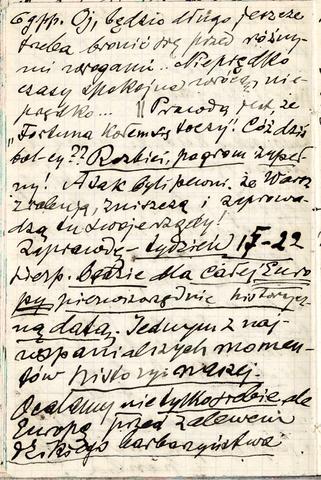 6 gpp. Oj, będzie długo jeszcze
trzeba bronić się przed różny-
mi wrogami... Nieprędko
czasy spokojne wrócą, nie-
prędko... || Prawdą jest że
"Fortuna kołem się toczy"! Cóż dziś
bol-cy?? Rozbici, pogrom zupeł-
ny! A jak byli pewni, że Warsz.
zaleją, zniszczą i zaprowa-
dzą tu swoje rządy!
Zaprawdę – tydzień 15–22
sierp. będzie dla całej Euro
py pierwszorzędnie historycz-
ną datą. Jednym z naj-
wspanialszych momen-
tów historyi naszej.
Ocaliliśmy nie tylko siebie ale
Europę przed zalewem
dzikiego barbarzyństwa